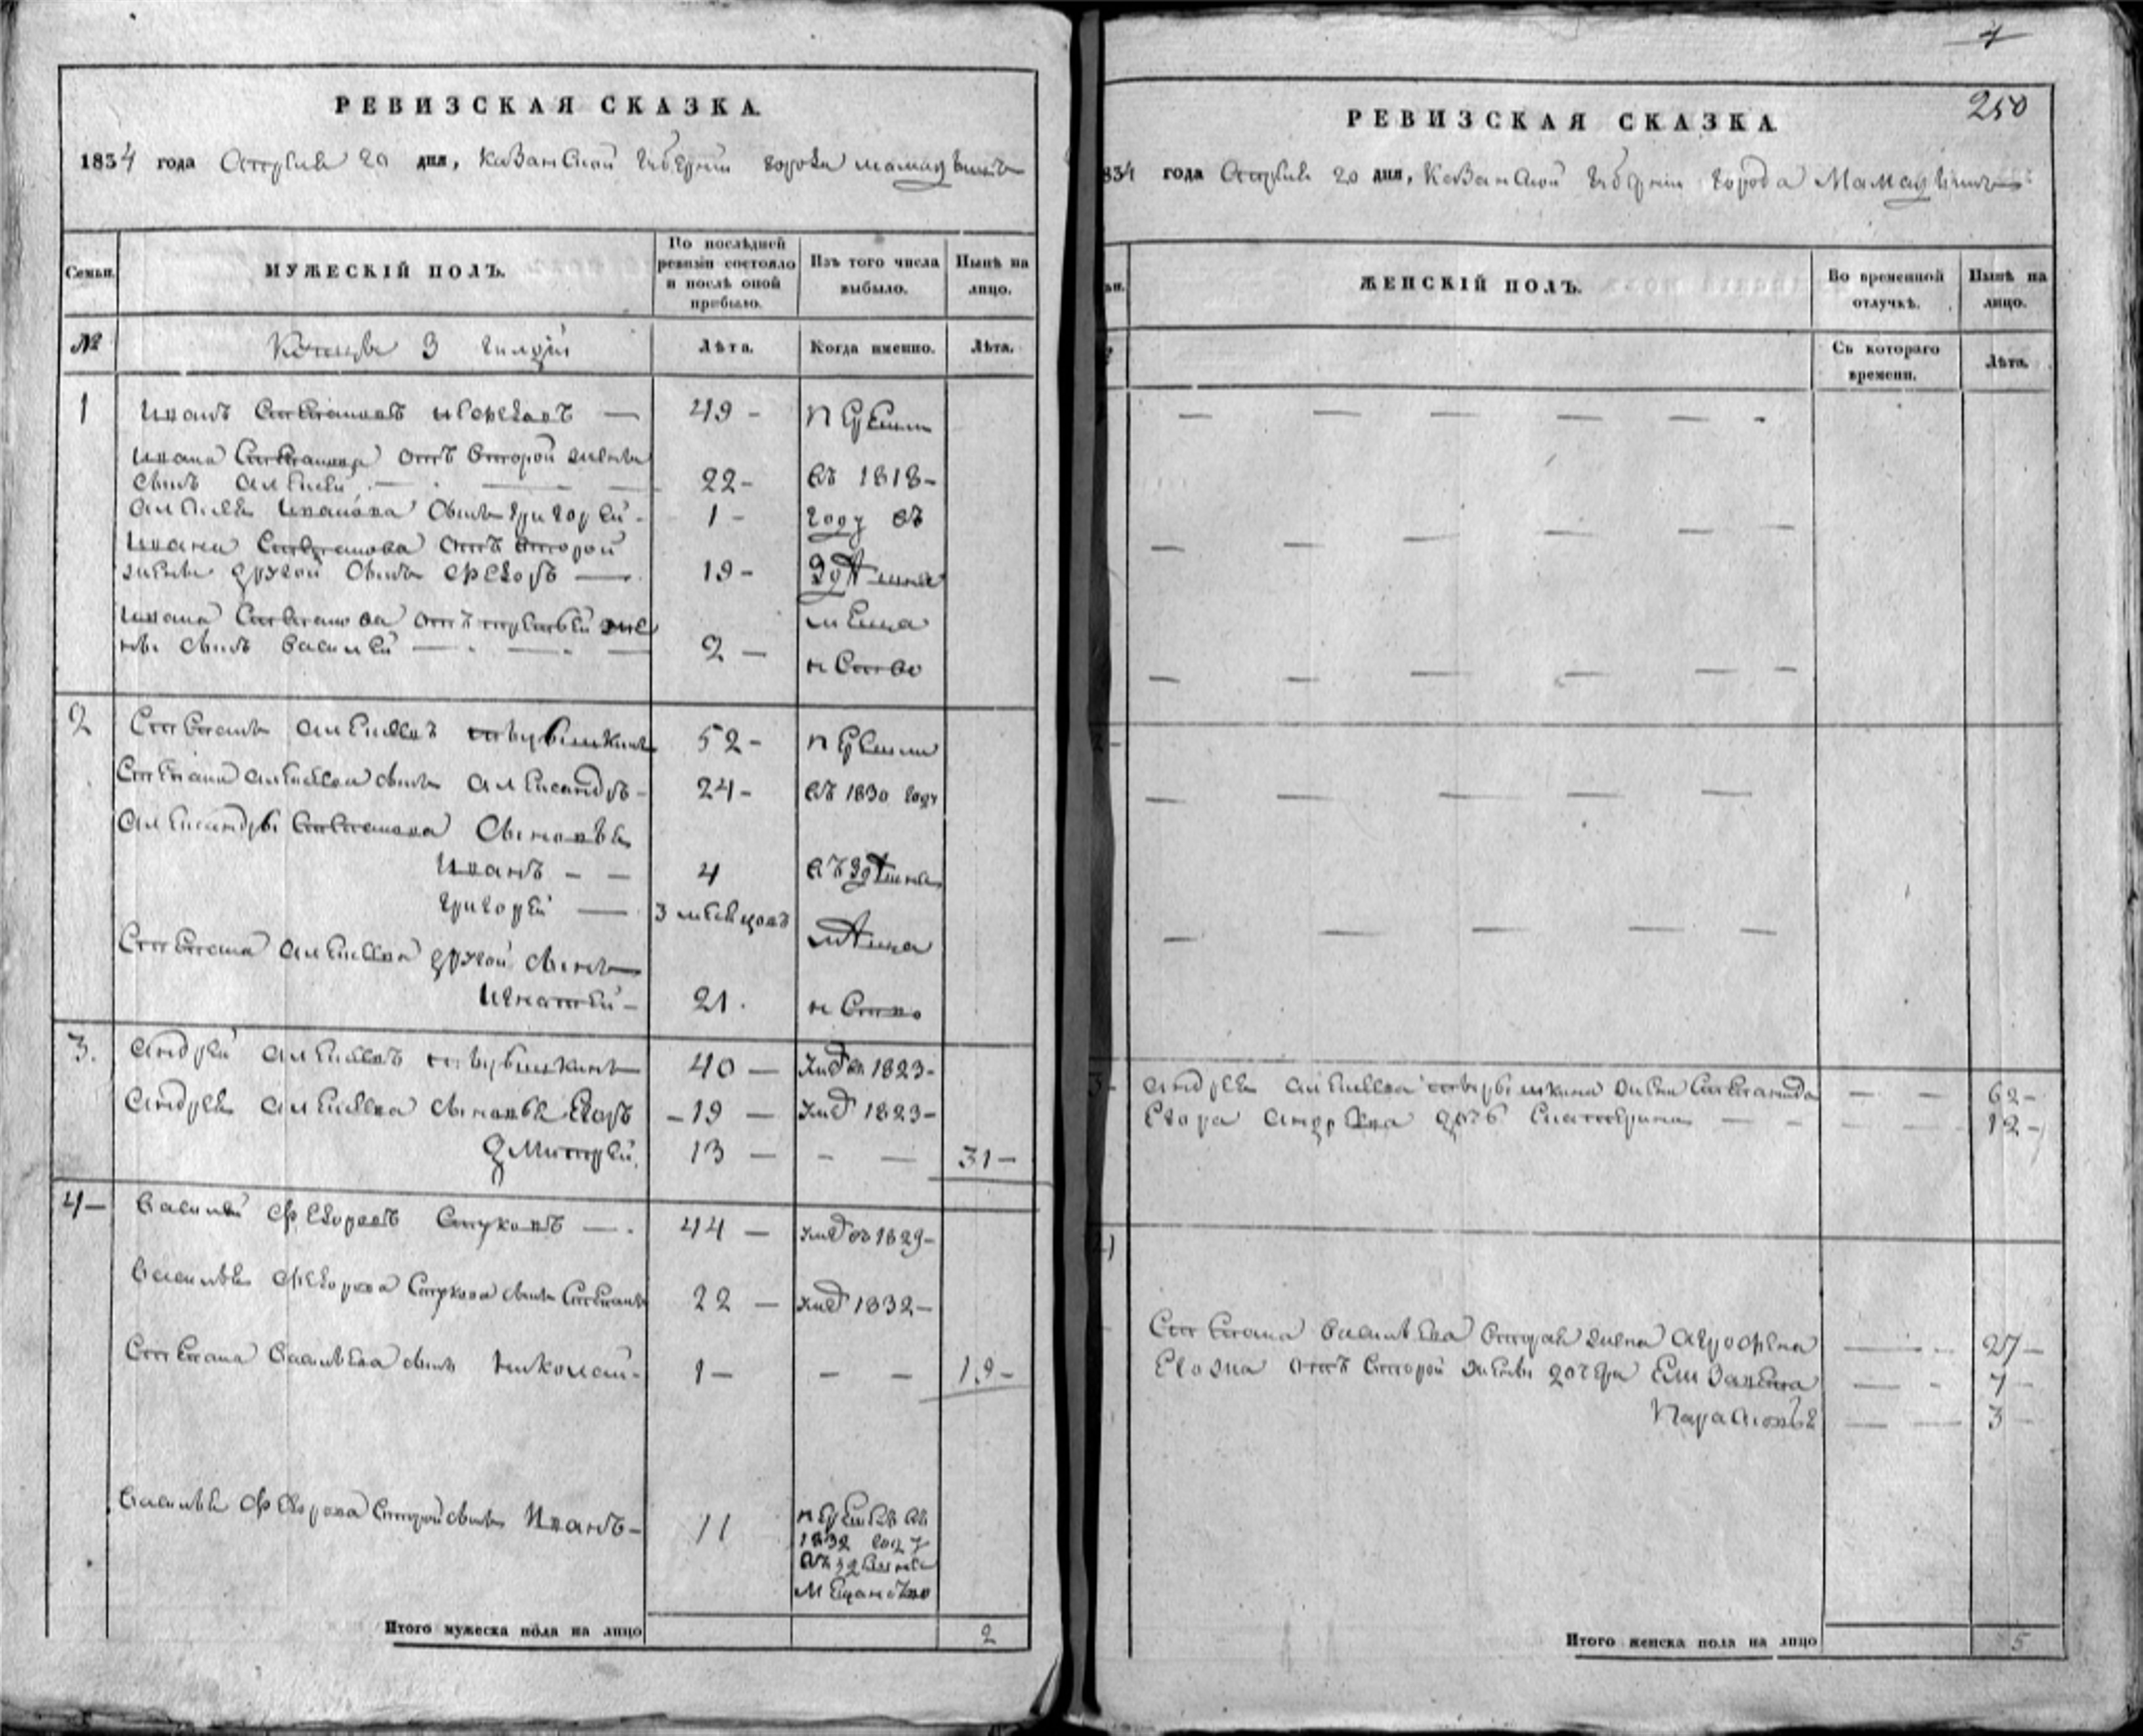 РЕВИЗСКАЯ СКАЗКА.
1834 года Апреля 20 дня, Казанской Губернии города Мамадыша
Семьи.
МУЖЕСКІЙ ПОЛЪ.
По послѣдней ревизіи состояло и послѣ оной прибыло.
Изъ того числа выбыло.
Нынѣ на лицо.
№
Купцы 3 гильдіи
Лѣта.
Когда именно.
Лѣта.
1
Иванъ Степановъ — 49 – перешли
Ивана Степанова отъ второй жены
сынъ Алексей — 22 – въ 1818 –
Алексея Иванова сынъ Григорей – 1 – году въ
Ивана Степанова отъ второй
жены другой сынъ Федоръ — 19 – здешнее
Ивана Степанова отъ первой же
ны сынъ Василей — 2 — меща
нство
2
Степанъ Алексеевъ 52 – перешли
Степана Алексеева сынъ Александръ – 24 – въ 1830 году
Александры Степанова сыновья
Иванъ – – 4 въ здешнее
Григорей — 3 месецовъ
Степана Алексеева другой сынъ меща
Игнатей – 21 нство
3.
Андрей Алексеевъ 40 — умеръ въ 1823 –
Андрея Алексеева сыновья Егоръ – 19 — умеръ 1823 –
Дмитрей 13 — – — 31 –
4 –
Василей Федоровъ Стуковъ — 44 — умеръ въ 1829 –
Василья Федорова Стукова сынъ Степанъ 22 — умеръ 1832 –
Степана Васильева сынъ Николай – 1 — – – 19 –
Василья Федорова второй сынъ Иванъ – 11 перешелъ въ
1832 году
въ здешнее
мещанство
Итого мужеска пола на лицо 2
7
250
РЕВИЗСКАЯ СКАЗКА
834 года Апреля 20 дня, Казанской Губернии города Мамадыша
ЖЕНСКІЙ ПОЛЪ.
Во временной отлучкѣ.
Нынѣ на лицо.
Съ котораго времени.
Лѣта.
3 –
Андрея Алексеева жена Степанида — — 62 –
Егора Андреева дочь Екатерина — – 12 –
4
Степана Васильева вторая жена Агрофена — – 27 –
Его жена отъ второй жены дочери Елизавета — – 7 –
Парасковья — — 3 –
Итого женска пола на лицо 5